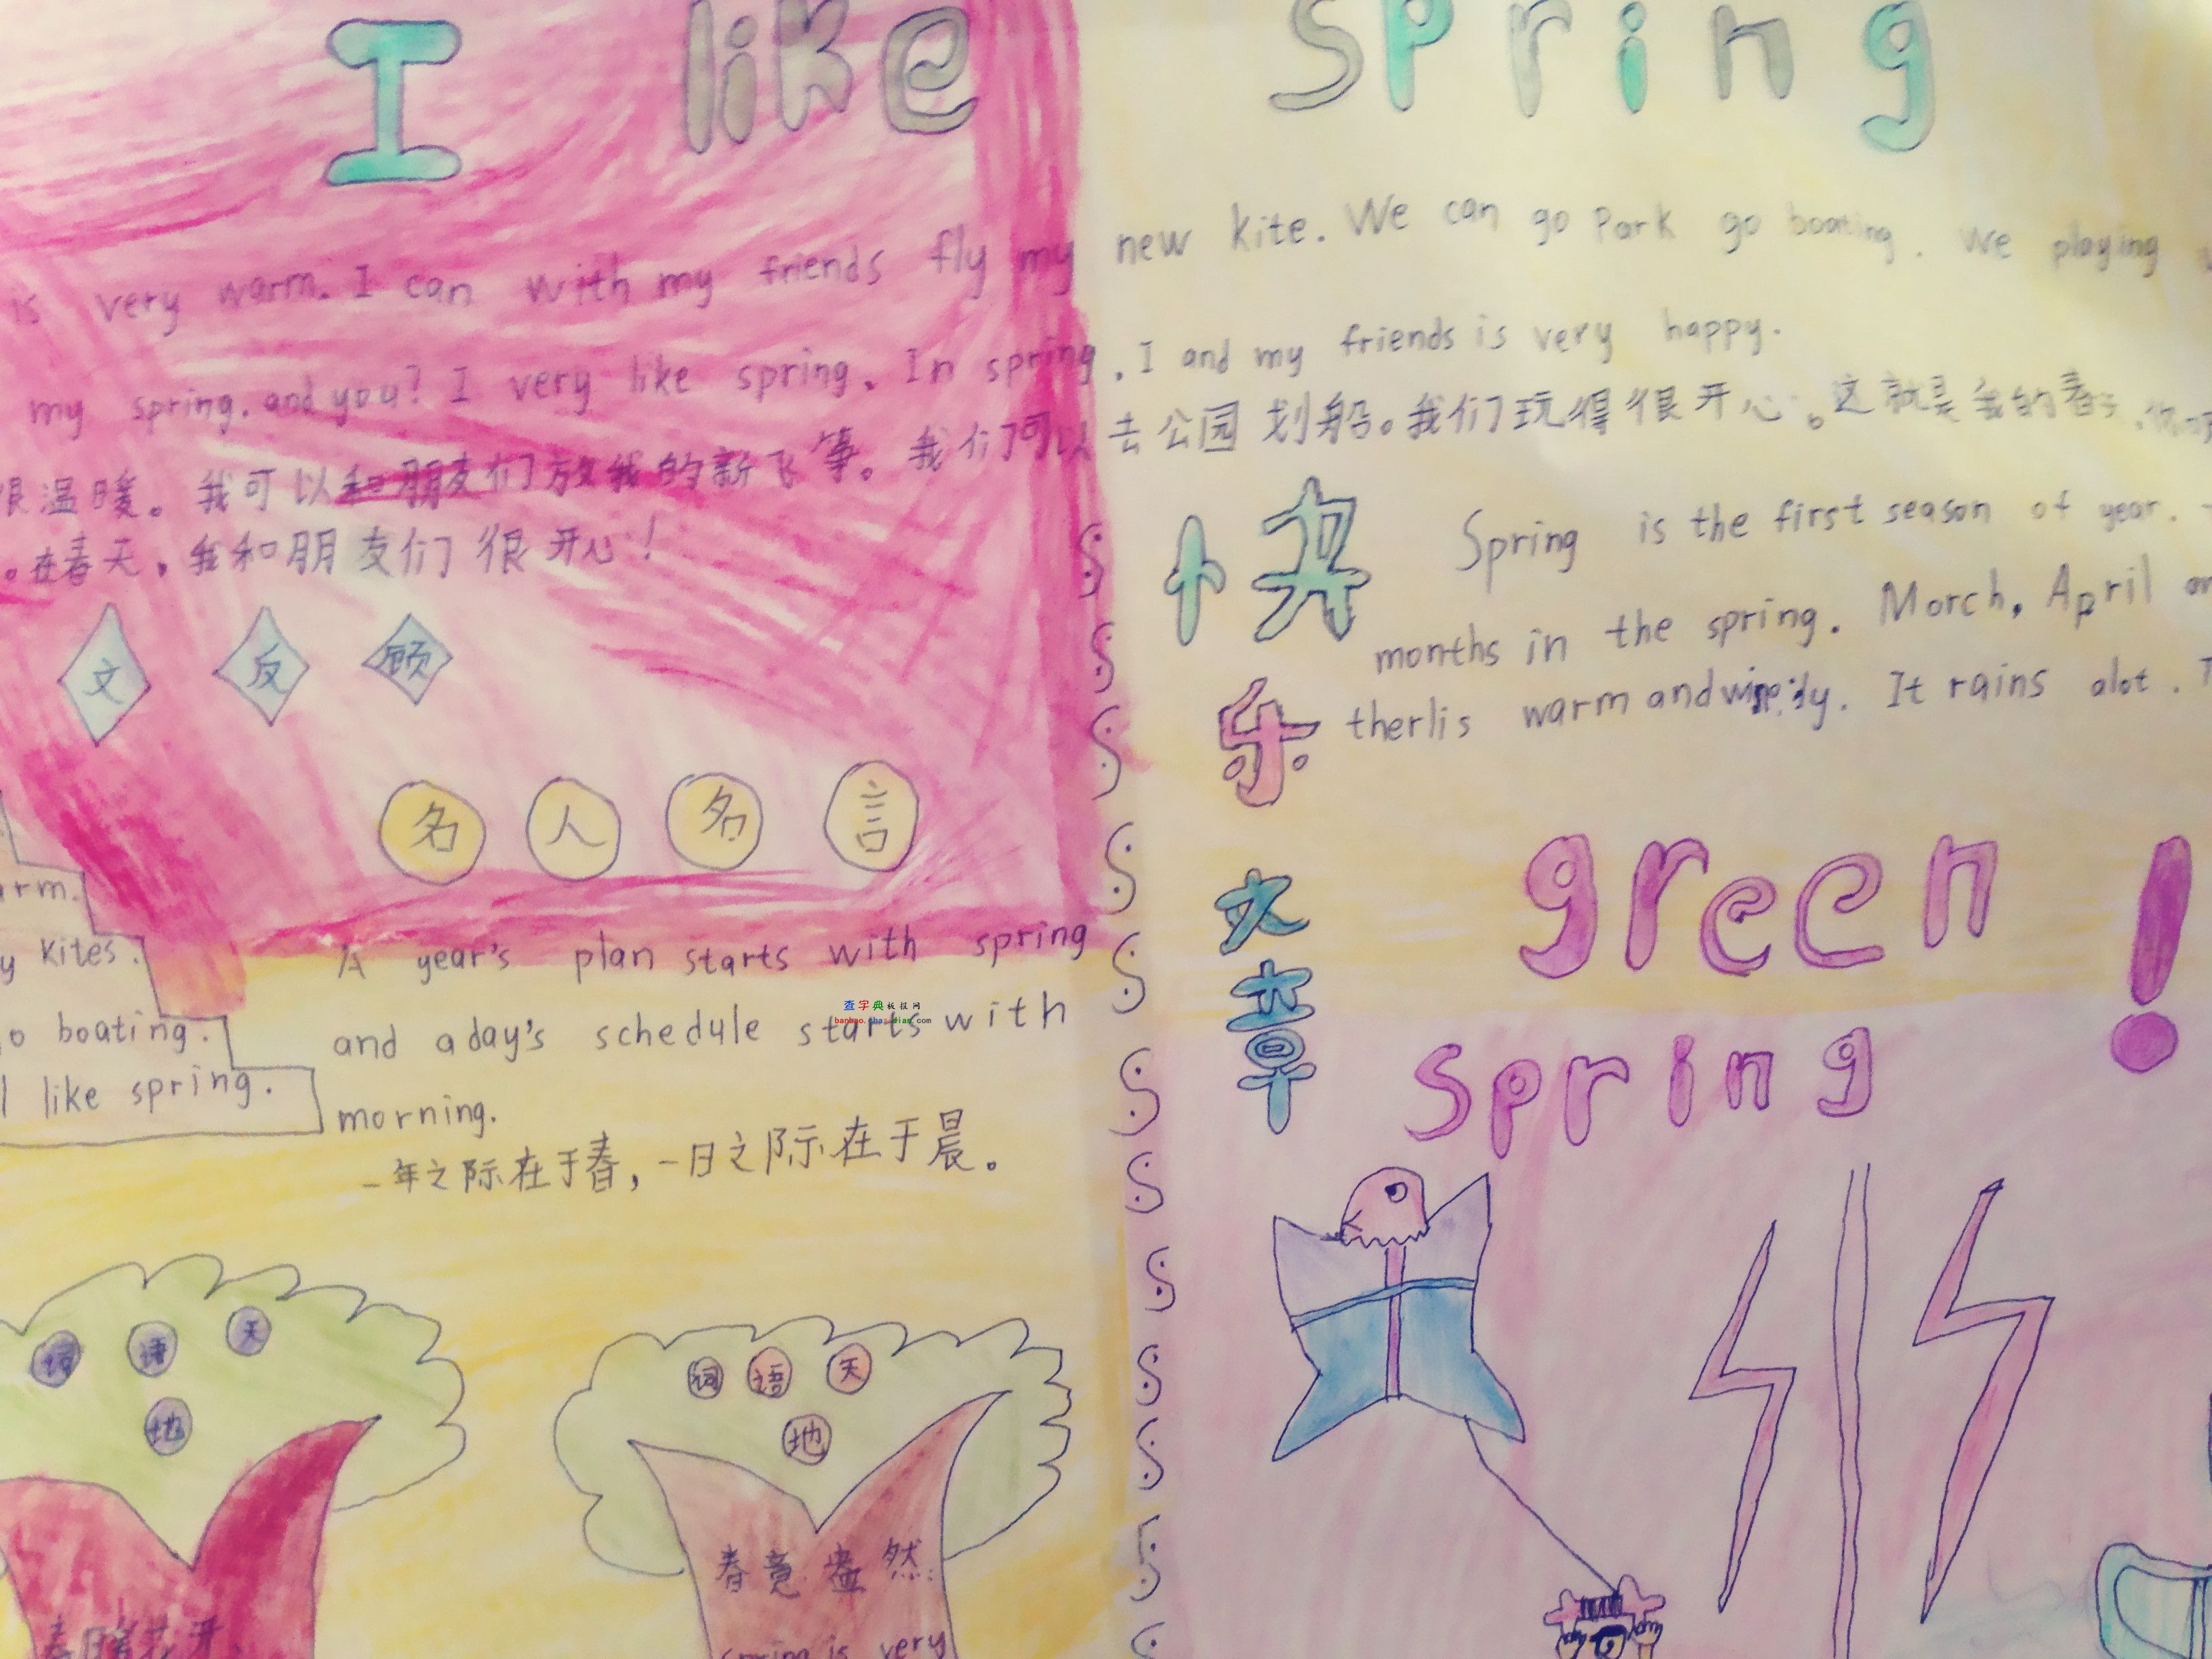 I like spring
is very warm. I can with my friends fly my new kite. We can go Park go boating. We playing
my spring. and you? I very like spring. In spring, I and my friends is very happy.
很温暖。我可以和朋友们放我的新飞筝。我们可以去公园划船。我们玩得很开心。这就是我的春天
。在春天,我和朋友们很开心!
文反顾
名人名言
快乐文章
Spring is the first season of year.
months in the spring. Morch, April
therlis warm and. It rains alot.
green!
spring
arm.
y kites.
o boating.
I like spring.
A year's plan starts with spring
and aday's schedule starts with
morning.
一年之际在于春,一日之际在于晨。
查字典板报网
banbao.chazidian.com
词语天地
词语天地
春暖花开、
春意盎然:
spring is very